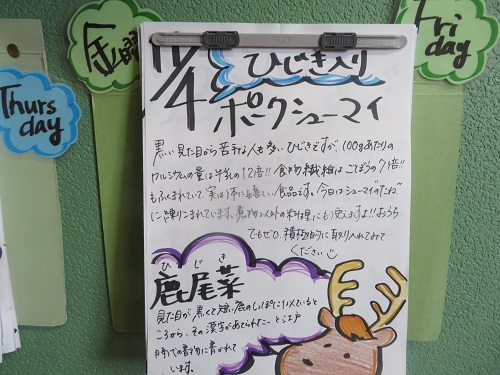 Thurs
day
金曜
Fri
day
11/4
ひじき入り
ポークシューマイ
黒い見た目から苦手な人も多いひじきですが、100gあたりの
カルシウムの量は牛乳の12倍!!食物繊維はごぼうの7倍!!
もふくまれていて、実は体に嬉しい食品です。今日はシューマイの"たね"
に練りこまれています。煮物以外の料理にも使えますよ!!おうち
でもぜひ、積極的に取り入れてみて
ください
ひじき
鹿尾菜
見た目が黒くて短い鹿のしっぽににていると
ころから、その漢字があてられたこと江戸
時代の書物に書かれて
います。